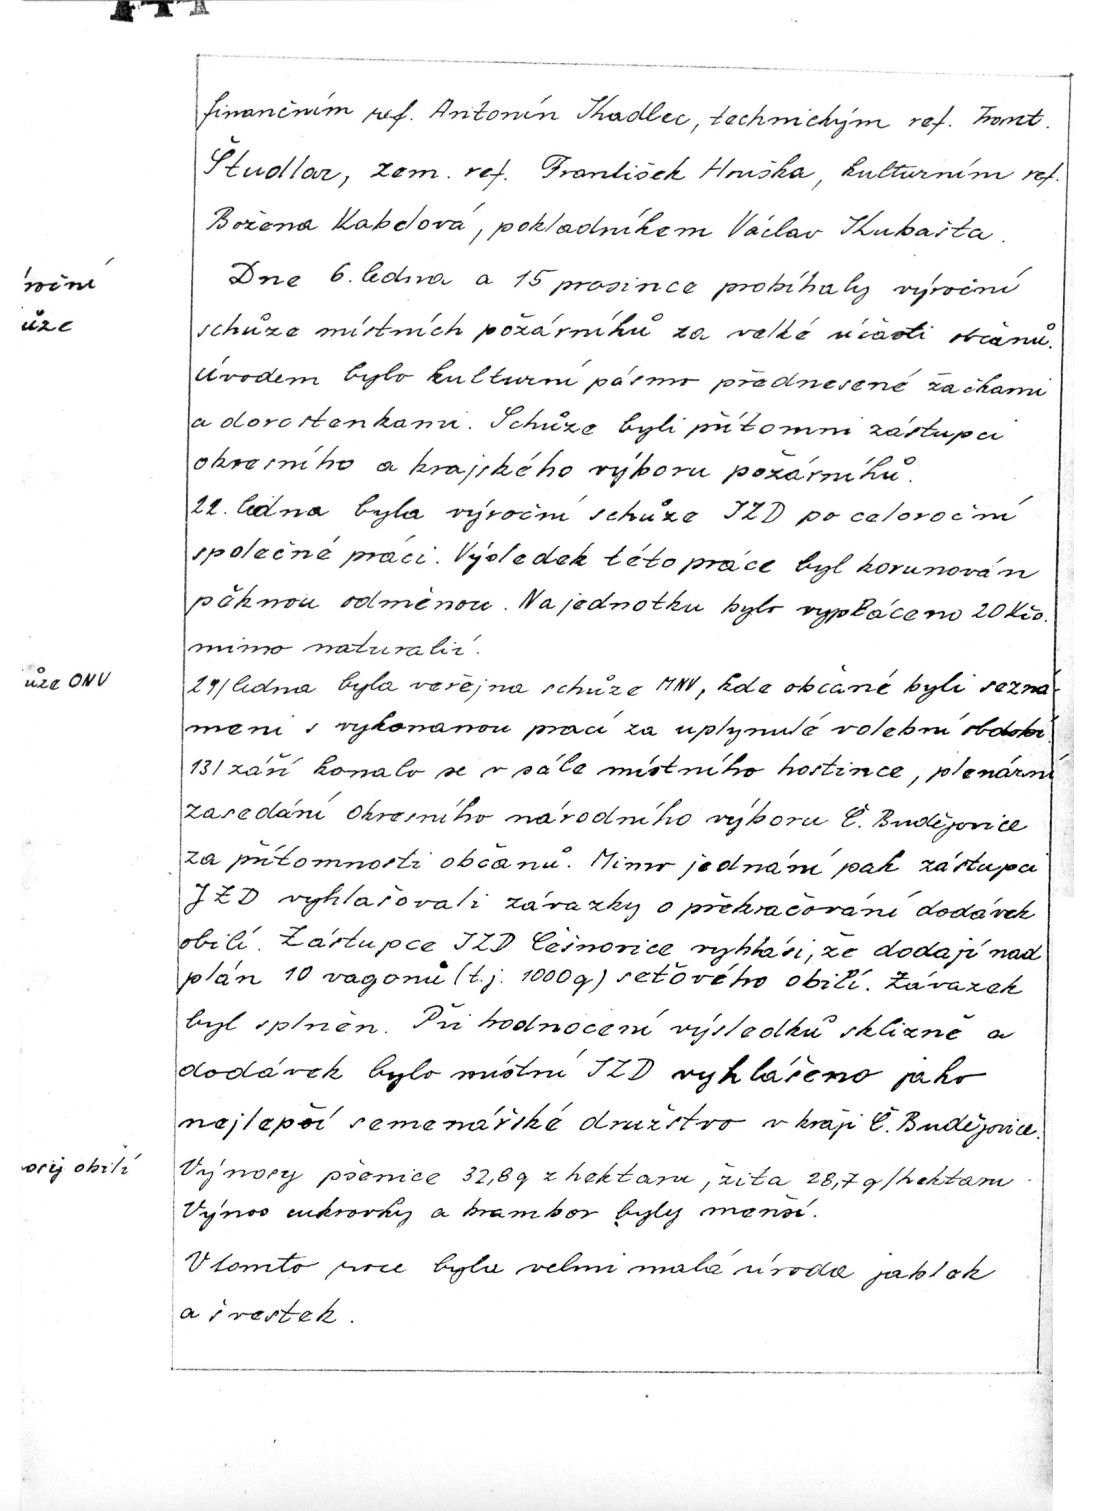 finančním ref. Antonín Kadlec, technickým ref. Frant.
Študlar, zem. ref. František Hruška, kulturním ref.
Božena Kabelová, pokladníkem Václav Kubašta.
Dne 6. ledna a 15 prosince probíhaly výroční
roční
schůze místních požárníků za velké účasti občanů.
ůze
Úvodem bylo kulturní pásmo přednesené žačkami
a dorostenkami. Schůze byli přítomni zástupci
okresního a krajského výboru požárníků.
22. ledna byla výroční schůze JZD po celoroční
společné práci. Výsledek této práce byl korunován
pěknou odměnou. Na jednotku bylo vypláceno 20 Kčs.
mimo naturalií.
ůze ONV
29/ ledna byla veřejna schůze MNV, kde občané byli sezná-
meni s vykonanou prací za uplynulé volební období.
13/ září konalo se v sále místního hostince, plenární
zasedání Okresního národního výboru Č. Budějovice
za přítomnosti občanů. Mimo jednání pak zástupci
JZD vyhlašovali závazky o překračování dodávek
obilí. Zástupce JZD Češnovice vyhlási, že dodají nad
plán 10 vagonů (t.j. 1000q) seťového obilí. Závazek
byl splněn. Při hodnocení výsledků sklizně a
dodávek bylo místní JZD vyhlášeno jako
nejlepší semenářské družstvo v kraji Č. Budějovice.
osy obilí
Výnosy pšenice 32,8q z hektaru, žita 28,7 q/hektaru
Výnos cukrovky a brambor byly menší.
V tomto roce byla velmi malá úroda jablek
a švestek.